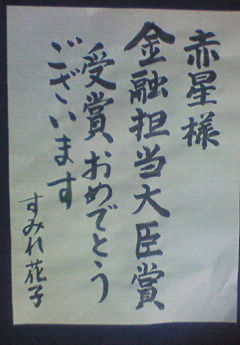 赤星様
金融担当大臣賞
受賞おめでとう
ございます
すみれ花子